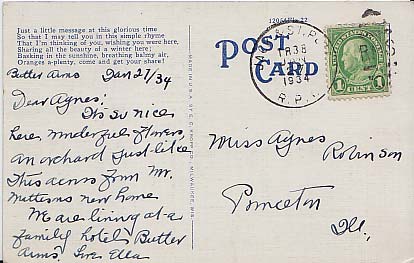 Just a little message at this glorious time
So that I may tell you in this simple rhyme
That I'm thinking of you, wishing you were here,
Sharing all the beauty of a winter here;
Basking in the sunshine, breathing balmy air,
Oranges a-plenty, come and get your share!
Butler Arms Jan 27/34
Dear Agnes:
Its so nice
here, wonderful flowers,
an orchard just like
this across from Mr.
new home
We are living at a
family hotel Butler
Arms. Love Ella
POST
CARD
TR 38
1934
R.P.O.
1 CENT 1
Miss Agnes
Robinson
Princeton
Ill.